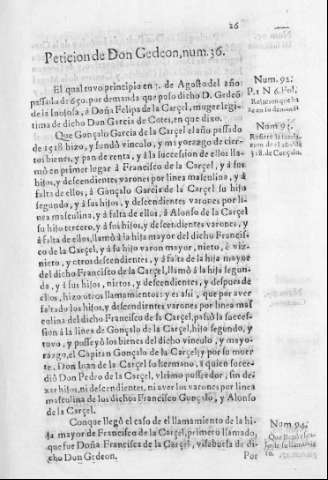 26
Peticion de Don Gedeon, num. 36.
El qual tuvo principio en 3. de Agosto del año
passado de 650. por demanda que puso dicho D. Gedeõ
de la Inojosa, á Doña Felipa de la Carçel, muger legi-
tima de dicho Don Garcia de Cotes, en que dixo.
Que Gonçalo Garcia de la Carçel el año passado
de 1528 hizo, y fundò vinculo, y mayorazgo de cier-
tos bienes, y pan de renta, y á la succession de ellos lla-
mò en primer lugar á Francisco de la Carçel, y á sus
hijos, y descendientes varones por linea masculina, y á
falta de ellos, á Gonçalo Garcia de la Carçel su hijo
segundo, y á sus hijos, y descendientes varones por li-
nea masculina, y á falta de ellos, á Alonso de la Carçel
su hijo tercero, y á sus hijos, y descendientes varones, y
á falta de ellos, llamò á la hija mayor del dicho Francis-
co de la Carçel, y á su hijo varon mayor, nieto, ò viz-
nieto, y otros descendientes, y á falta de la hija mayor
del dicho Francisco de la Carçel, llamò á la hija segun-
da, y á sus hijos, nietos, y descendientes, y despues de
ellos, hizo otros llamamientos: y es assi, que por aver
faltado los hijos, y descendientes varones por linea mas
culina del dicho Francisco de la Carçel, passò la succes-
sion á la linea de Gonçalo de la Carçel, hijo segundo, y
tuvo, y posseyò los bienes del dicho vinculo, y mayo-
razgo, el Capitan Gonçalo de la Carçel; y por su muer
te, Don Juan de la Carçel su hermano, á quien suce-
diò Don Pedro de la Carçel, vltimo posseedor, sin de-
xar hijos, ni descendientes, ni aver los varones por linea
masculina de los dichos Francisco Gonçalo, y Alonso
de la Carçel.
Conque llegò el caso de el llamamiento de la hi-
ja mayor de Francisco de la Carçel, primero llamado,
que fue Doña Francisca de la Carçel, visabuela de di-
cho Don Gedeon.
Por
Num. 92.
P. 1 N 6. Fol.
Num 93.
Num 94.